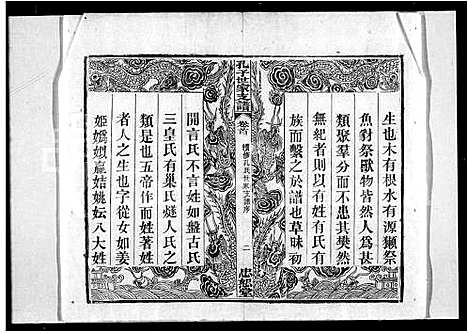 生也木有根水有源獺祭
魚豺祭獸物皆然人為甚
類聚羣分而不患其樊然
無紀者則以有姓有氏有
族而繫之於譜也草昧初
孔子世家支譜
卷首
續修孔氏世家支譜序
二
忠恕堂
開言氏不言姓如盤古氏
三皇氏有巢氏燧人氏之
類是也五帝作而姓著姓
者人之生也字從女如姜
姬嬀姒嬴姞姚妘八大姓